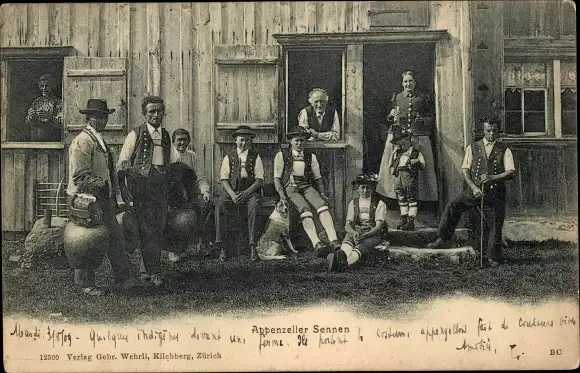 Appenzeller Sennen
Mardi 3/8/09 - Quelques indigènes devant une ferme. Ils portent le costume appenzellois fait de couleurs vives
Amitiés,
12500 Verlag Gebr. Wehrli, Kilchberg, Zürich
BC